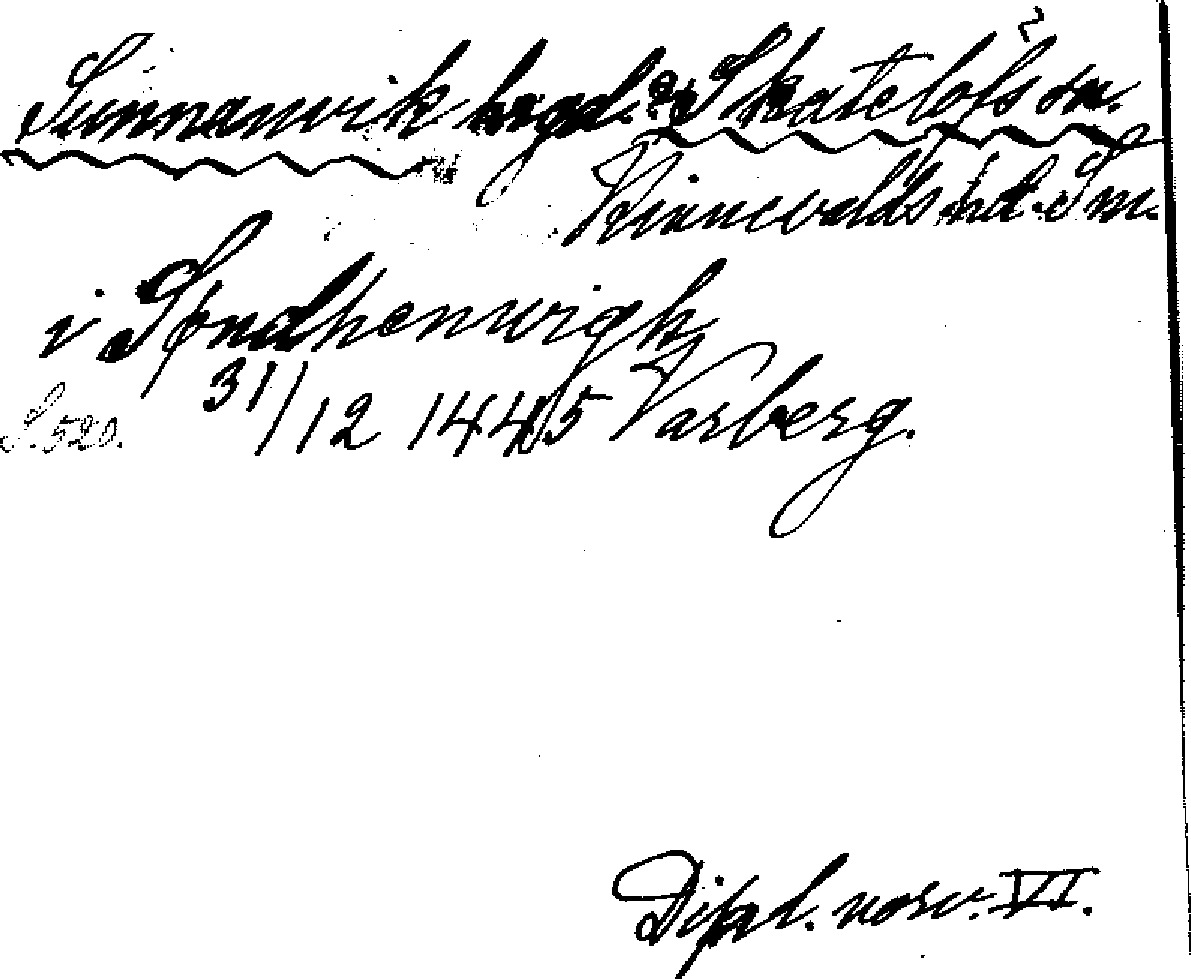 Sunnanvik hgd.? Skatelöfs sn.
Kinnevalds hd. Sm.
i Søndhenwigh
S. 520. 31/12 1445 Varberg.
Dipl. norv. VI.